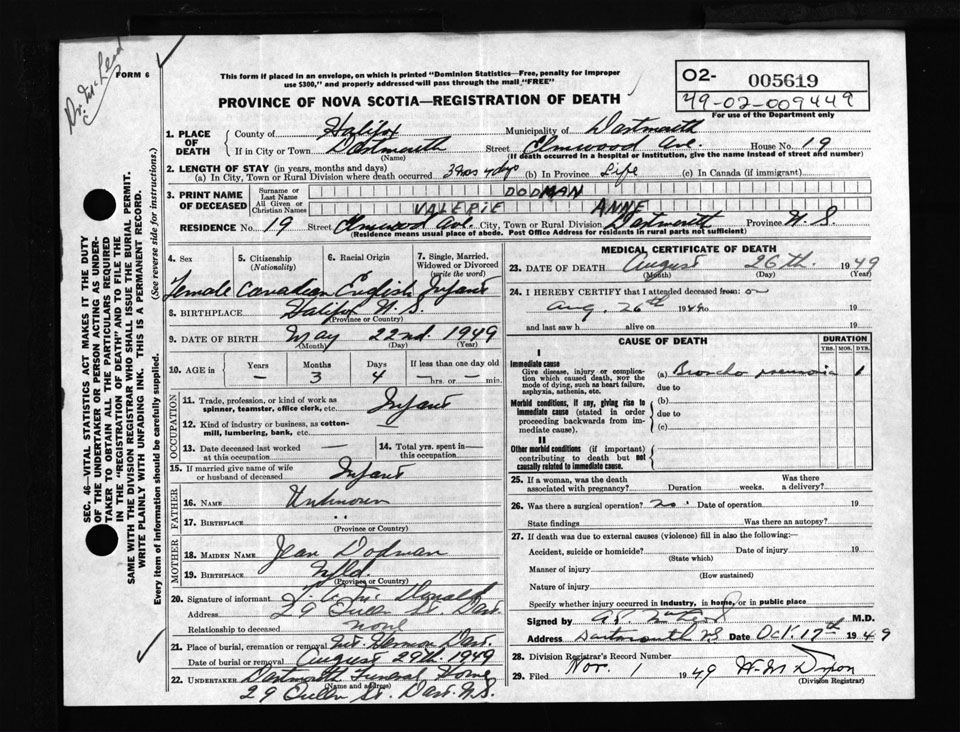 Dr. McLeod
FORM 6
This form if placed in an envelope, on which is printed "Dominion Statistics—Free, penalty for improper
use $300," and properly addressed will pass through the mail "FREE"
PROVINCE OF NOVA SCOTIA—REGISTRATION OF DEATH
02- 005619
49-02-009449
For use of the Department only
1. PLACE OF DEATH
County of Halifax Municipality of Dartmouth
If in City or Town Dartmouth Street Elmwood Ave. House No. 19
(Name) (If death occurred in a hospital or institution, give the name instead of street and number)
2. LENGTH OF STAY (in years, months and days)
(a) In City, Town or Rural Division where death occurred 3 mos 4 dys (b) In Province Life (c) In Canada (if immigrant)
3. PRINT NAME OF DECEASED
Surname or Last Name DODMAN
All Given or Christian Names VALERIE ANNE
RESIDENCE No. 19 Street Elmwood Ave. City, Town or Rural Division Dartmouth Province N.S.
(Residence means usual place of abode. Post Office Address for residents in rural parts not sufficient)
SEC. 46—VITAL STATISTICS ACT MAKES IT THE DUTY
OF THE UNDERTAKER OR PERSON ACTING AS UNDER-
TAKER TO OBTAIN ALL THE PARTICULARS REQUIRED
IN THE "REGISTRATION OF DEATH" AND TO FILE THE
SAME WITH THE DIVISION REGISTRAR WHO SHALL ISSUE THE BURIAL PERMIT.
WRITE PLAINLY WITH UNFADING INK. THIS IS A PERMANENT RECORD.
Every item of information should be carefully supplied. (See reverse side for instructions.)
4. Sex 5. Citizenship (Nationality) 6. Racial Origin 7. Single, Married, Widowed or Divorced (write the word)
Female Canadian English Infant
8. BIRTHPLACE Halifax N.S.
(Province or Country)
9. DATE OF BIRTH May 22nd. 1949
(Month) (Day) (Year)
10. AGE in Years Months Days If less than one day old
— 3 4 — hrs. or — min.
OCCUPATION
11. Trade, profession, or kind of work as spinner, teamster, office clerk, etc. Infant
12. Kind of industry or business, as cotton-mill, lumbering, bank, etc. —
13. Date deceased last worked at this occupation — 14. Total yrs. spent in this occupation
15. If married give name of wife or husband of deceased Infant
FATHER
16. NAME Unknown
17. BIRTHPLACE ..
(Province or Country)
MOTHER
18. MAIDEN NAME Jean Dodman
19. BIRTHPLACE Nfld.
(Province or Country)
20. Signature of informant McDonald
Address 29 Queen St. Dart.
Relationship to deceased none
21. Place of burial, cremation or removal Mt. Hermon Dart.
Date of burial or removal August 29th 1949
22. UNDERTAKER Dartmouth Funeral Home
(Name and address)
29 Queen St. Dart. N.S.
MEDICAL CERTIFICATE OF DEATH
23. DATE OF DEATH August 26th. 1949
(Month) (Day) (Year)
24. I HEREBY CERTIFY that I attended deceased from: on
Aug. 26th 1949 to 19
and last saw h alive on 19
CAUSE OF DEATH DURATION
YRS. MOS. DYS.
I
Immediate cause
Give disease, injury or complication which caused death, not the mode of dying, such as heart failure, asphyxia, asthenia, etc.
(a) Broncho pneumonia 1
due to
Morbid conditions, if any, giving rise to immediate cause (stated in order proceeding backwards from immediate cause).
(b)
due to
(c)
II
Other morbid conditions (if important) contributing to death but not causally related to immediate cause.
25. If a woman, was the death associated with pregnancy? Duration weeks. Was there a delivery?
26. Was there a surgical operation? no Date of operation 19
State findings Was there an autopsy?
27. If death was due to external causes (violence) fill in also the following:
Accident, suicide or homicide? Date of injury 19
(State which)
Manner of injury
(How sustained)
Nature of injury
Specify whether injury occurred in industry, in home, or in public place
Signed by M.D.
Address Dartmouth NS Date Oct. 17th 1949
28. Division Registrar's Record Number
29. Filed Nov. 1 1949 W. M. Dixon
(Division Registrar)